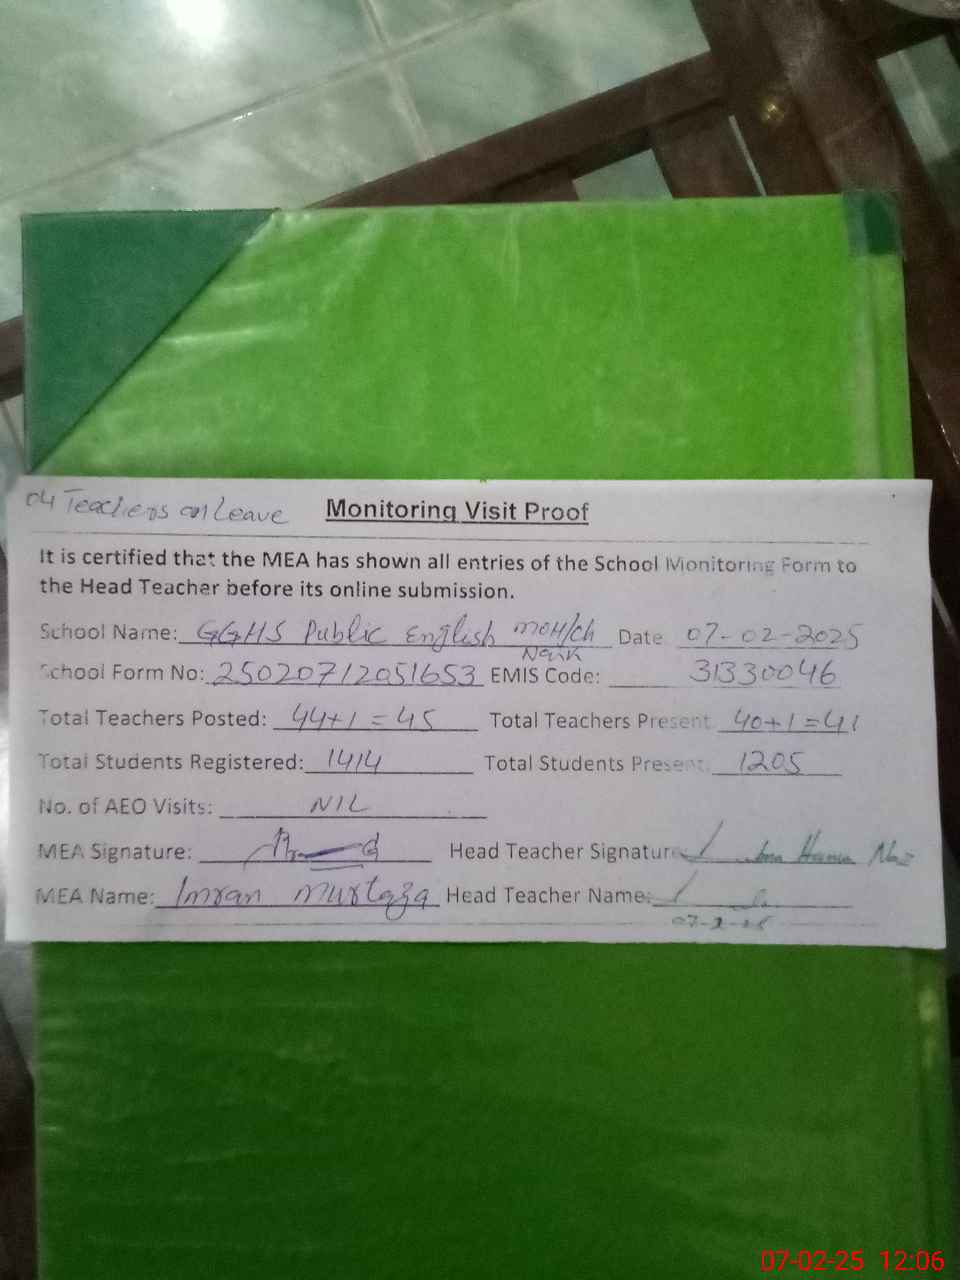 04 Teachers on Leave
Monitoring Visit Proof
It is certified that the MEA has shown all entries of the School Monitoring Form to
the Head Teacher before its online submission.
School Name: GGHS Public English Date 07-02-2025
School Form No: 25020712051653 EMIS Code: 31330046
Total Teachers Posted: 44+1=45 Total Teachers Present: 40+1=41
Total Students Registered: 1414 Total Students Present: 1205
No. of AEO Visits: NIL
MEA Signature: Head Teacher Signature
MEA Name: Imran Murtaza Head Teacher Name:
07-02-25 12:06